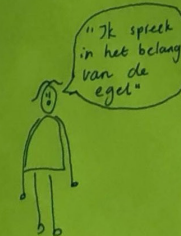 "Ik spreek
in het belang
van de
egel"